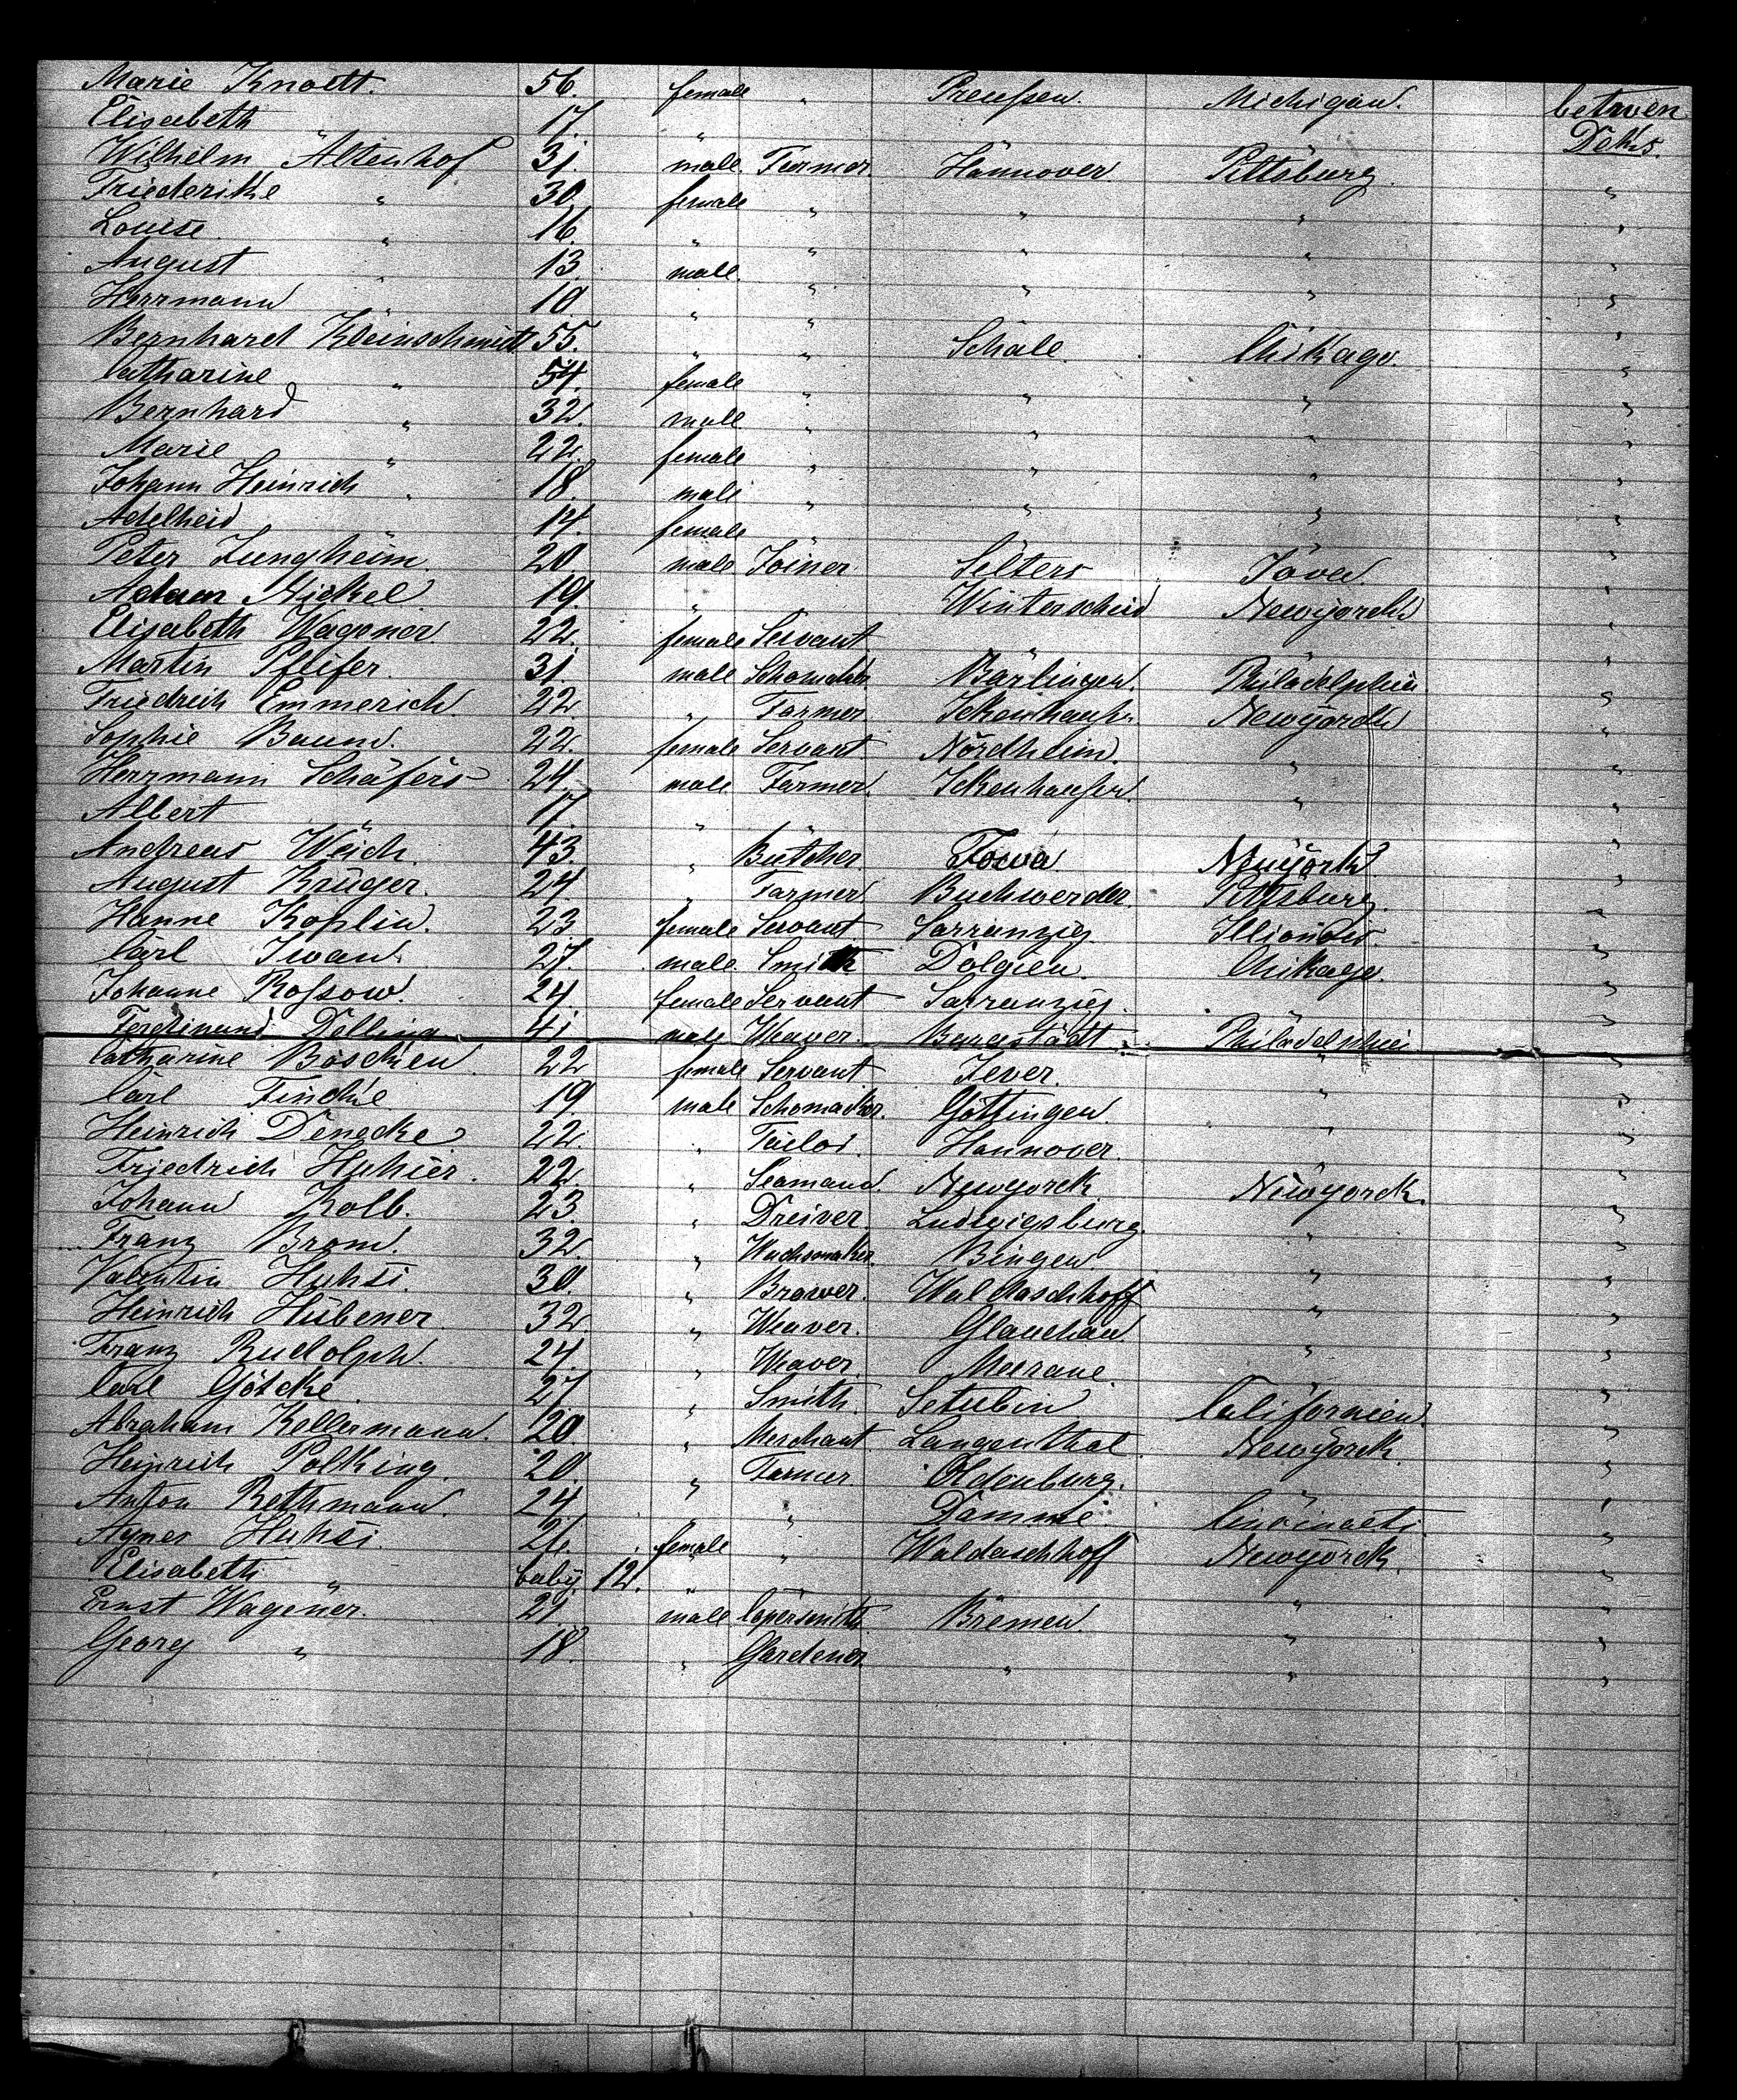 Marie Knoett. 56. female " Preußen. Michigan. betwen
Elisabeth 17. " Deks.
Wilhelm Altenhof 31. male. Farmer. Hannover. Pittsburg. "
Friederike " 30. female " " " "
Louise " 16. " " " "
August " 13. male. " " " "
Herrmann " 10 " " " "
Bernhard Kleinschmidt 55. " " Schale. Chikago. "
Catharine " 54. female " " " "
Bernhard " 32. male " " " "
Marie " 22. female " " " "
Johann Heinrich " 18. male " " " "
Adelheid 14. female " "
Peter Jungheim. 20. male Joiner Selters Jova. "
Adam Nickel 19. " Winterscheid Newyorck "
Elisabeth Wagener 22. female Servant " " "
Martin Pfleifer. 31. male Schomaker Bärlingen. Philadelphia "
Friedrich Emmerich. 22. " Farmer Ickenhausen. Newyorck "
Sophie Baum. 22. female Servant Nordheim. " "
Herrmann Schäfers 24. male Farmer. Ickenhausen. " "
Albert 17. " "
Andreas Weich. 43. " Butcher Iowa Newyork. "
August Krüger. 24. " Farmer Buchwerder. Pittsburg. "
Hanne Koplin. 23 female Servant Sarranzig Illionois. "
Carl Iwan. 27. male. Smith Dolgien. Chikago. "
Johanne Roßow. 24. female Servant Sarranzig. "
Ferdinand Delling 41 male Weaver. Burgstädt. Philadelphia
Catharine Böschen. 22 female Servant Jever. " "
Carl Fincke 19 male Schomacker. Göttingen. " "
Heinrich Denecke 22. " Tailor. Hannover. "
Friedrich Huhier. 22. " Seamann. Newyorck Newyorck. "
Johann Kolb. 23. " Dreiver. Ludwigsburg. " "
Franz Brom. 32. " Wachsmaker. Bingen " "
Valentin Huhsi 30. " Brower. Waldaschhoff " "
Heinrich Hübener. 32. " Weaver. Glauchau " "
Franz Rudolph. 24. " Weaver Meerane. " "
Carl Götcke. 27 " Smith. Setubin Californien "
Abraham Kellermann. 20. " Merchant. Langenthal Newyorck. "
Heinrich Polking. 20. " Farmer. Oldenburg. "
Anton Rethmann. 24. " " Damme Cincinaeti. "
Agnes Huhsi. 26. female " Waldaschhoff Newyorck. "
Elisabeth " baby 12. " "
Ernst Wagener. 21 male Copersmith. Bremen. " "
Georg " 18. " Gardener. " " "